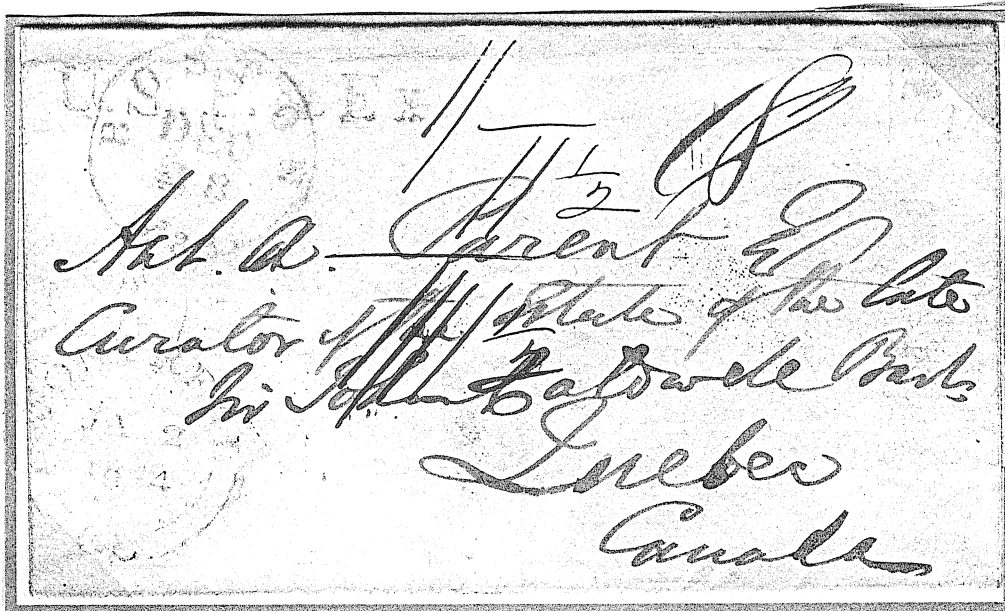 U.S. EX
DEC
1/-
11 1/2
Ant. A. Parent Esq
Curator of the Estate of the late
Sir John Caldwell Bart.
Quebec
Canada